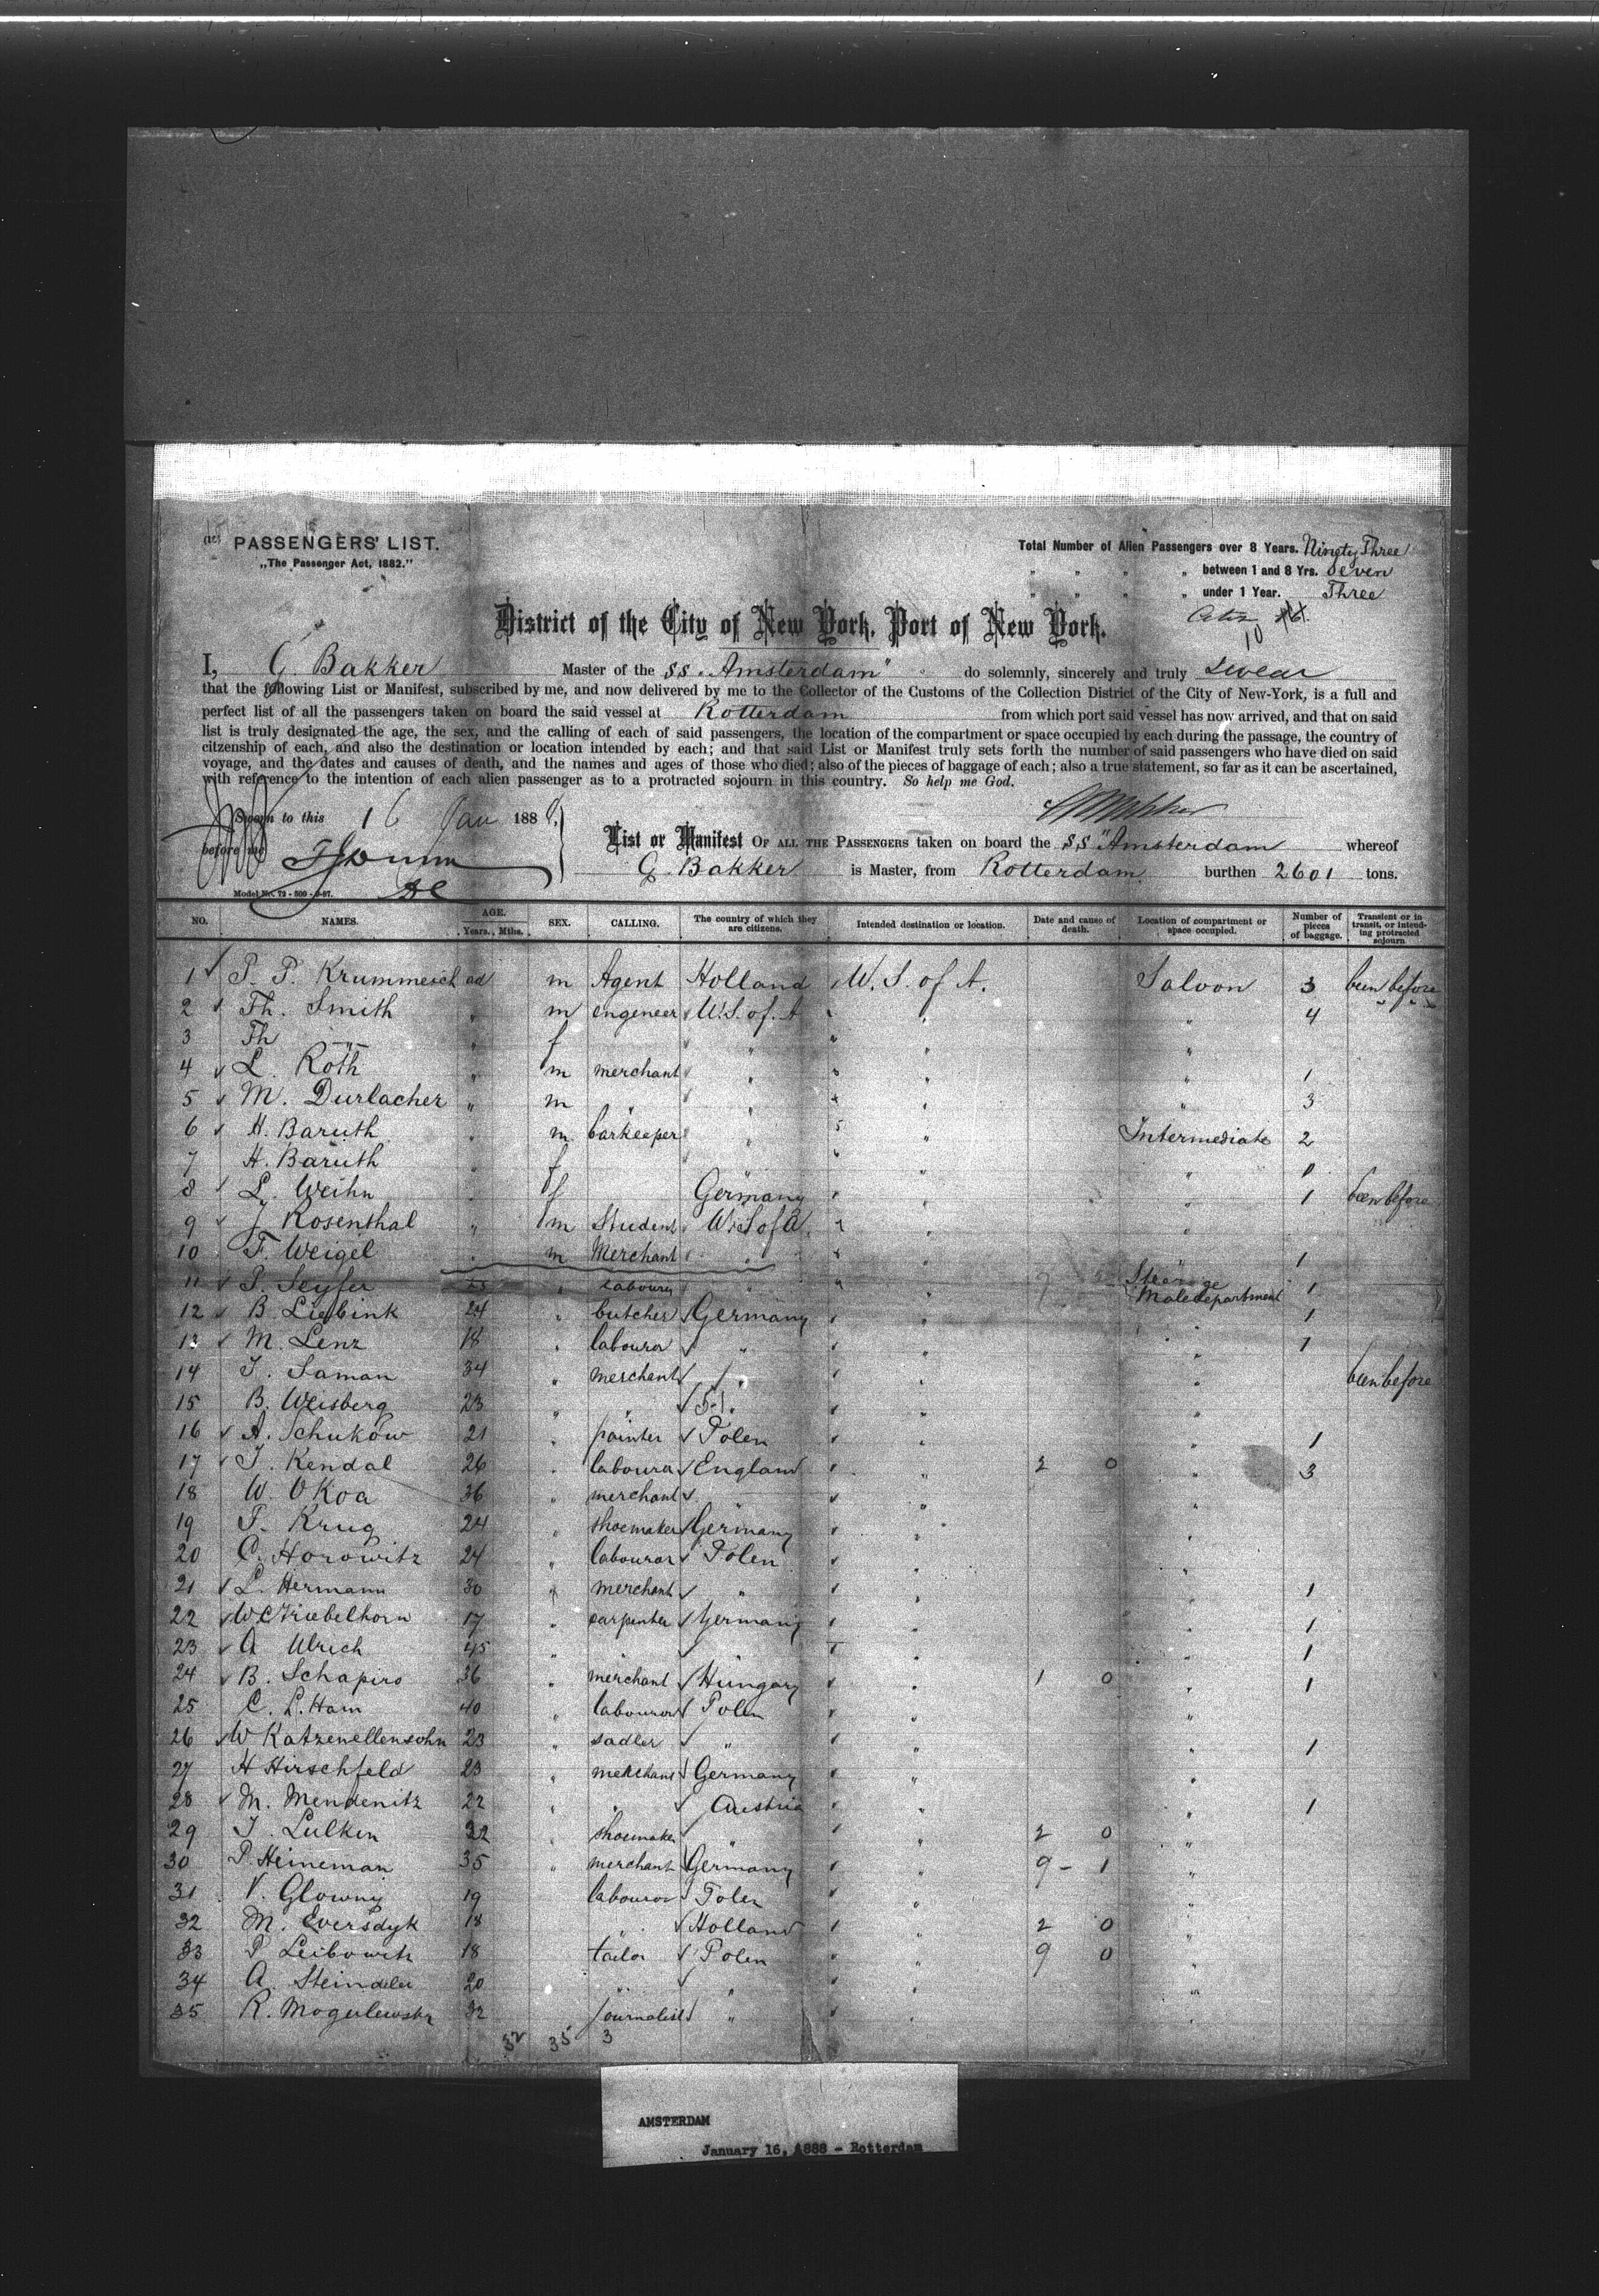 PASSENGERS' LIST.
„The Passenger Act, 1882."
Total Number of Alien Passengers over 8 Years. Ninety Three
" " " „ between 1 and 8 Yrs. Seven
" " " „ under 1 Year. Three
10
District of the City of New York, Port of New York.
I, G. Bakker Master of the SS „Amsterdam" do solemnly, sincerely and truly swear
that the following List or Manifest, subscribed by me, and now delivered by me to the Collector of the Customs of the Collection District of the City of New-York, is a full and
perfect list of all the passengers taken on board the said vessel at Rotterdam from which port said vessel has now arrived, and that on said
list is truly designated the age, the sex, and the calling of each of said passengers, the location of the compartment or space occupied by each during the passage, the country of
citzenship of each, and also the destination or location intended by each; and that said List or Manifest truly sets forth the number of said passengers who have died on said
voyage, and the dates and causes of death, and the names and ages of those who died; also of the pieces of baggage of each; also a true statement, so far as it can be ascertained,
with reference to the intention of each alien passenger as to a protracted sojourn in this country. So help me God.
Sworn to this 16 Jan 1888.
before me
List or Manifest OF ALL THE PASSENGERS taken on board the SS "Amsterdam whereof
G. Bakker is Master, from Rotterdam burthen 2601 tons.
Model No. 72 - 500 - 9-87.
NO. NAMES. AGE. Years. Mths. SEX. CALLING. The country of which they are citizens. Intended destination or location. Date and cause of death. Location of compartment or space occupied. Number of pieces of baggage. Transient or in transit, or intending protracted sojourn
1 P. P. Krummesch ad m Agent Holland W. S. of A. Saloon 3 been before
2 Th. Smith " m engeneer U.S. of A " " " 4
3 Th —"— " f " " " "
4 L. Roth " m merchant " " " " 1
5 M. Durlacher " m " " " " " 3
6 H. Baruth " m barkeeper " " Intermediate 2
7 H. Baruth " f " " "
8 L. Weihn " f Germany " " " 1 been before
9 J. Rosenthal " m Student U.S of A. " " "
10 F. Weigel " m Merchant " " 1
11 P. Seyfer 25 " labourer " " " Steerage Maledepartment 1
12 B. Liebink 24 " butcher Germany " " 1
13 M. Lenz 18 " labourer " " " " 1
14 J. Saman 34 " merchant " " " been before
15 B. Weisberg 23 " " " " "
16 A. Schukow 21 " painter Polen " " " 1
17 J. Kendal 26 " labourer England " " 2 0 " 3
18 W. O Koa 36 " merchant " " " "
19 P. Krug 24 " shoemaker Germany " " "
20 C. Horowitz 24 " labouror Polen " " "
21 L. Hermann 30 " merchant " " " " 1
22 17 " carpenter Germany " " " 1
23 A Ulrich 45 " " " " " " 1
24 B. Schapiro 36 " merchant Hungary " " 1 0 " 1
25 C. L. Ham 40 " labouror Polen " " "
26 W Katzenellensohn 23 " sadler " " " " 1
27 H Hirschfeld 23 " merchant Germany " " "
28 M. Mendenitz 22 " " Austria " " " 1
29 J. Lulken 32 " shoemaker " " " 2 0 "
30 P. Heineman 35 " merchant Germany " " 9 - 1 "
31 V. Glowny 19 labouror Polen " " "
32 M. Eversdyk 18 " Holland " " 2 0 "
33 P Leibowitz 18 tailor Polen " " 9 0 "
34 A. Steindeler 20 " " " " "
35 R. Mogulewsky 32 journalist " " " "
32 35 3
AMSTERDAM
January 16, 1888 - Rotterdam